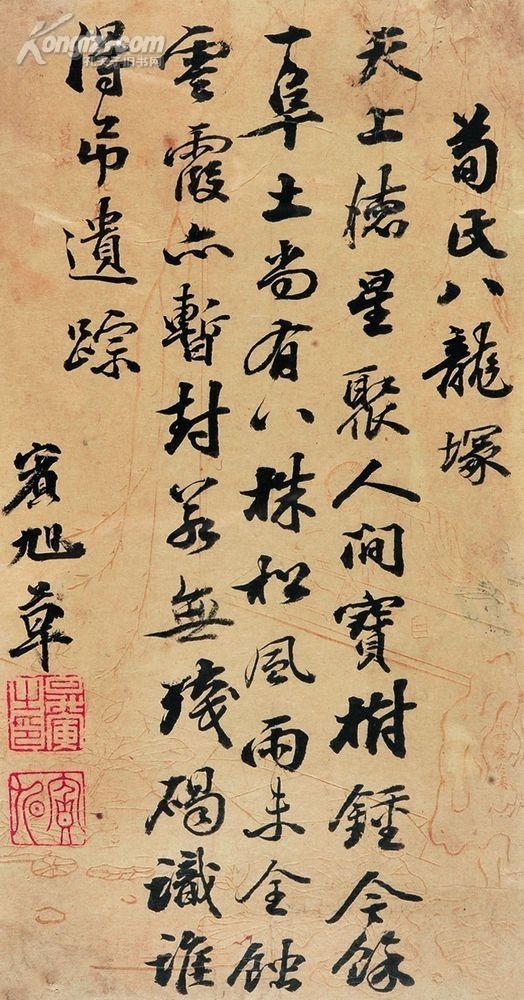 荀氏八龍塚
天上德星聚人間寶樹鍾今餘
一阜土尚有八株松風雨未全蝕
雲霞亦暫封若無殘碣識誰
得吊遺踪
旭草
Kongfz.com
孔夫子旧书网